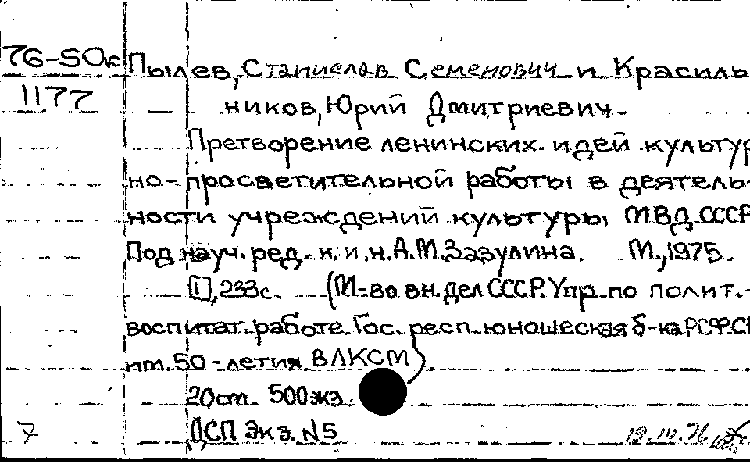 76-50к Пылев, Станислав Семенович и Красиль-
1177 ников, Юрий Дмитриевич.
Претворение ленинских идей культур
но-просветительной работы в деятель-
ности учреждений культуры МВД СССР
Под науч. ред. к.и.н. А.М. Зазулина. М., 1975.
[1], 233 с. (М-во вн. дел СССР. Упр. по полит.-
воспитат. работе. Гос. респ. юношеская б-ка РСФСР
им. 50-летия ВЛКСМ).
20 см. 500 экз.
ДСП Экз. N5
7 19.III.76